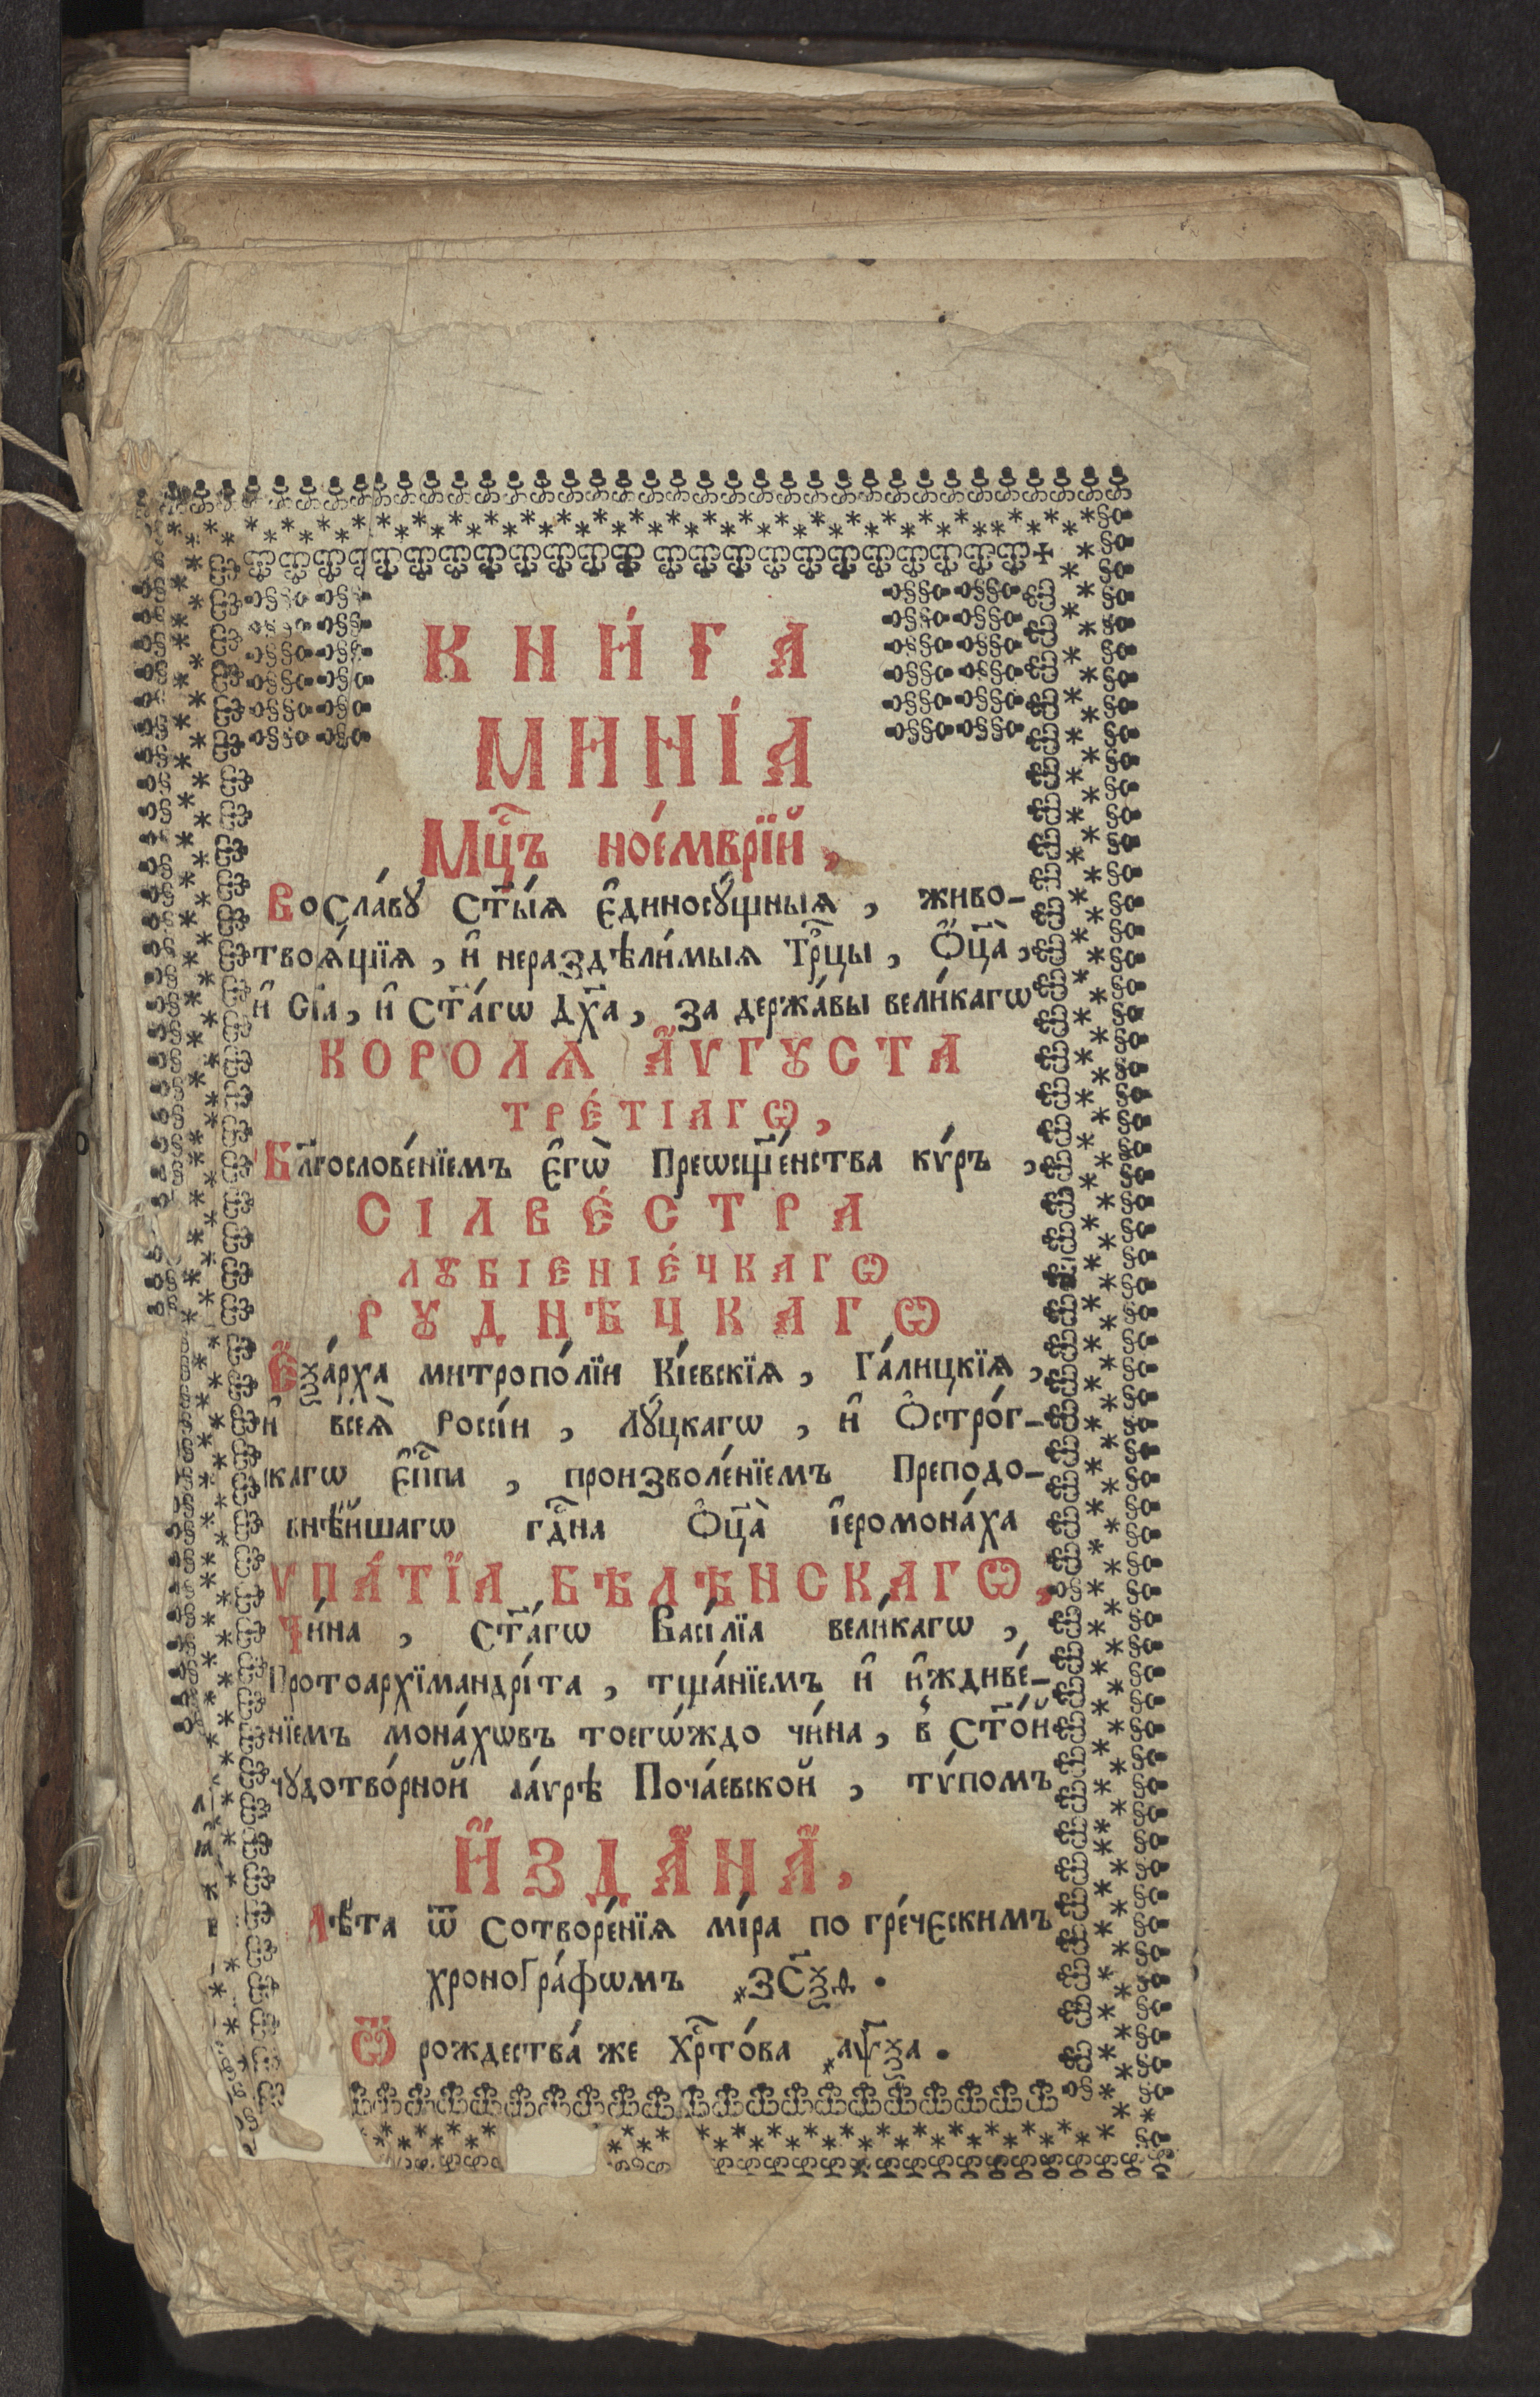 КНИ́ГА
МИНІ́А
Мц҃ъ ное́мврїй,
Восла́вꙋ Ст҃ы́ѧ є҆диносꙋ́щныѧ, живо-
творѧ́щїѧ, и҆ нераздѣли́мыѧ Трⷪ҇цы, Ѻ҆ц҃а̀,
и҆ Сн҃а, и҆ Ст҃а́гѡ Дх҃а, за держа́вы вели́кагѡ
КОРОЛѦ А҆́ѴГꙊСТА
ТРЕ́ТІАГѠ,
Бл҃гословеⷩ҇́їемъ є҆гѡ̀ Преѡсщ҃е́нства кѵ́ръ,
СІЛВЕ́СТРА
ЛꙊБІЕНІЕ́ЧКАГѠ
РꙊДНѢЧКАГѠ
Е҆ѯа́рха митропо́лїи Кі́евскїѧ, Га́лицкїѧ,
и҆ всеѧ̀ Россі́и, лꙋ́цкагѡ, и҆ Ѻ҆стро́г-
скагѡ Є҆пⷭ҇па, произволе́нїемъ Преподо-
бнѣ́йшагѡ гдⷭ҇на Ѻ҆ц҃а̀ і҆еромона́ха
ѴПА́ТЇА БѢЛѢНСКАГѠ,
Чи́на, Ст҃а́гѡ Васі́лїа вели́кагѡ,
Протоархїмандрі́та, тща́нїемъ и҆ и҆ждиве́-
нїемъ мона́хѡвъ тоегѡ́ждо чи́на, в̾ Ст҃о́й
чꙋдотво́рной ла́ѵрѣ Поча́евской, тѵ́помъ
И҆ЗДА́НА,
Лѣ́та ѿ Сотворе́нїѧ мі́ра по гре́ческимъ
хроногра́фѡмъ ҂зс҃ѯд.
Ѿ рождества́ же Хрⷭ҇то́ва ҂аѱ҃ѯа.